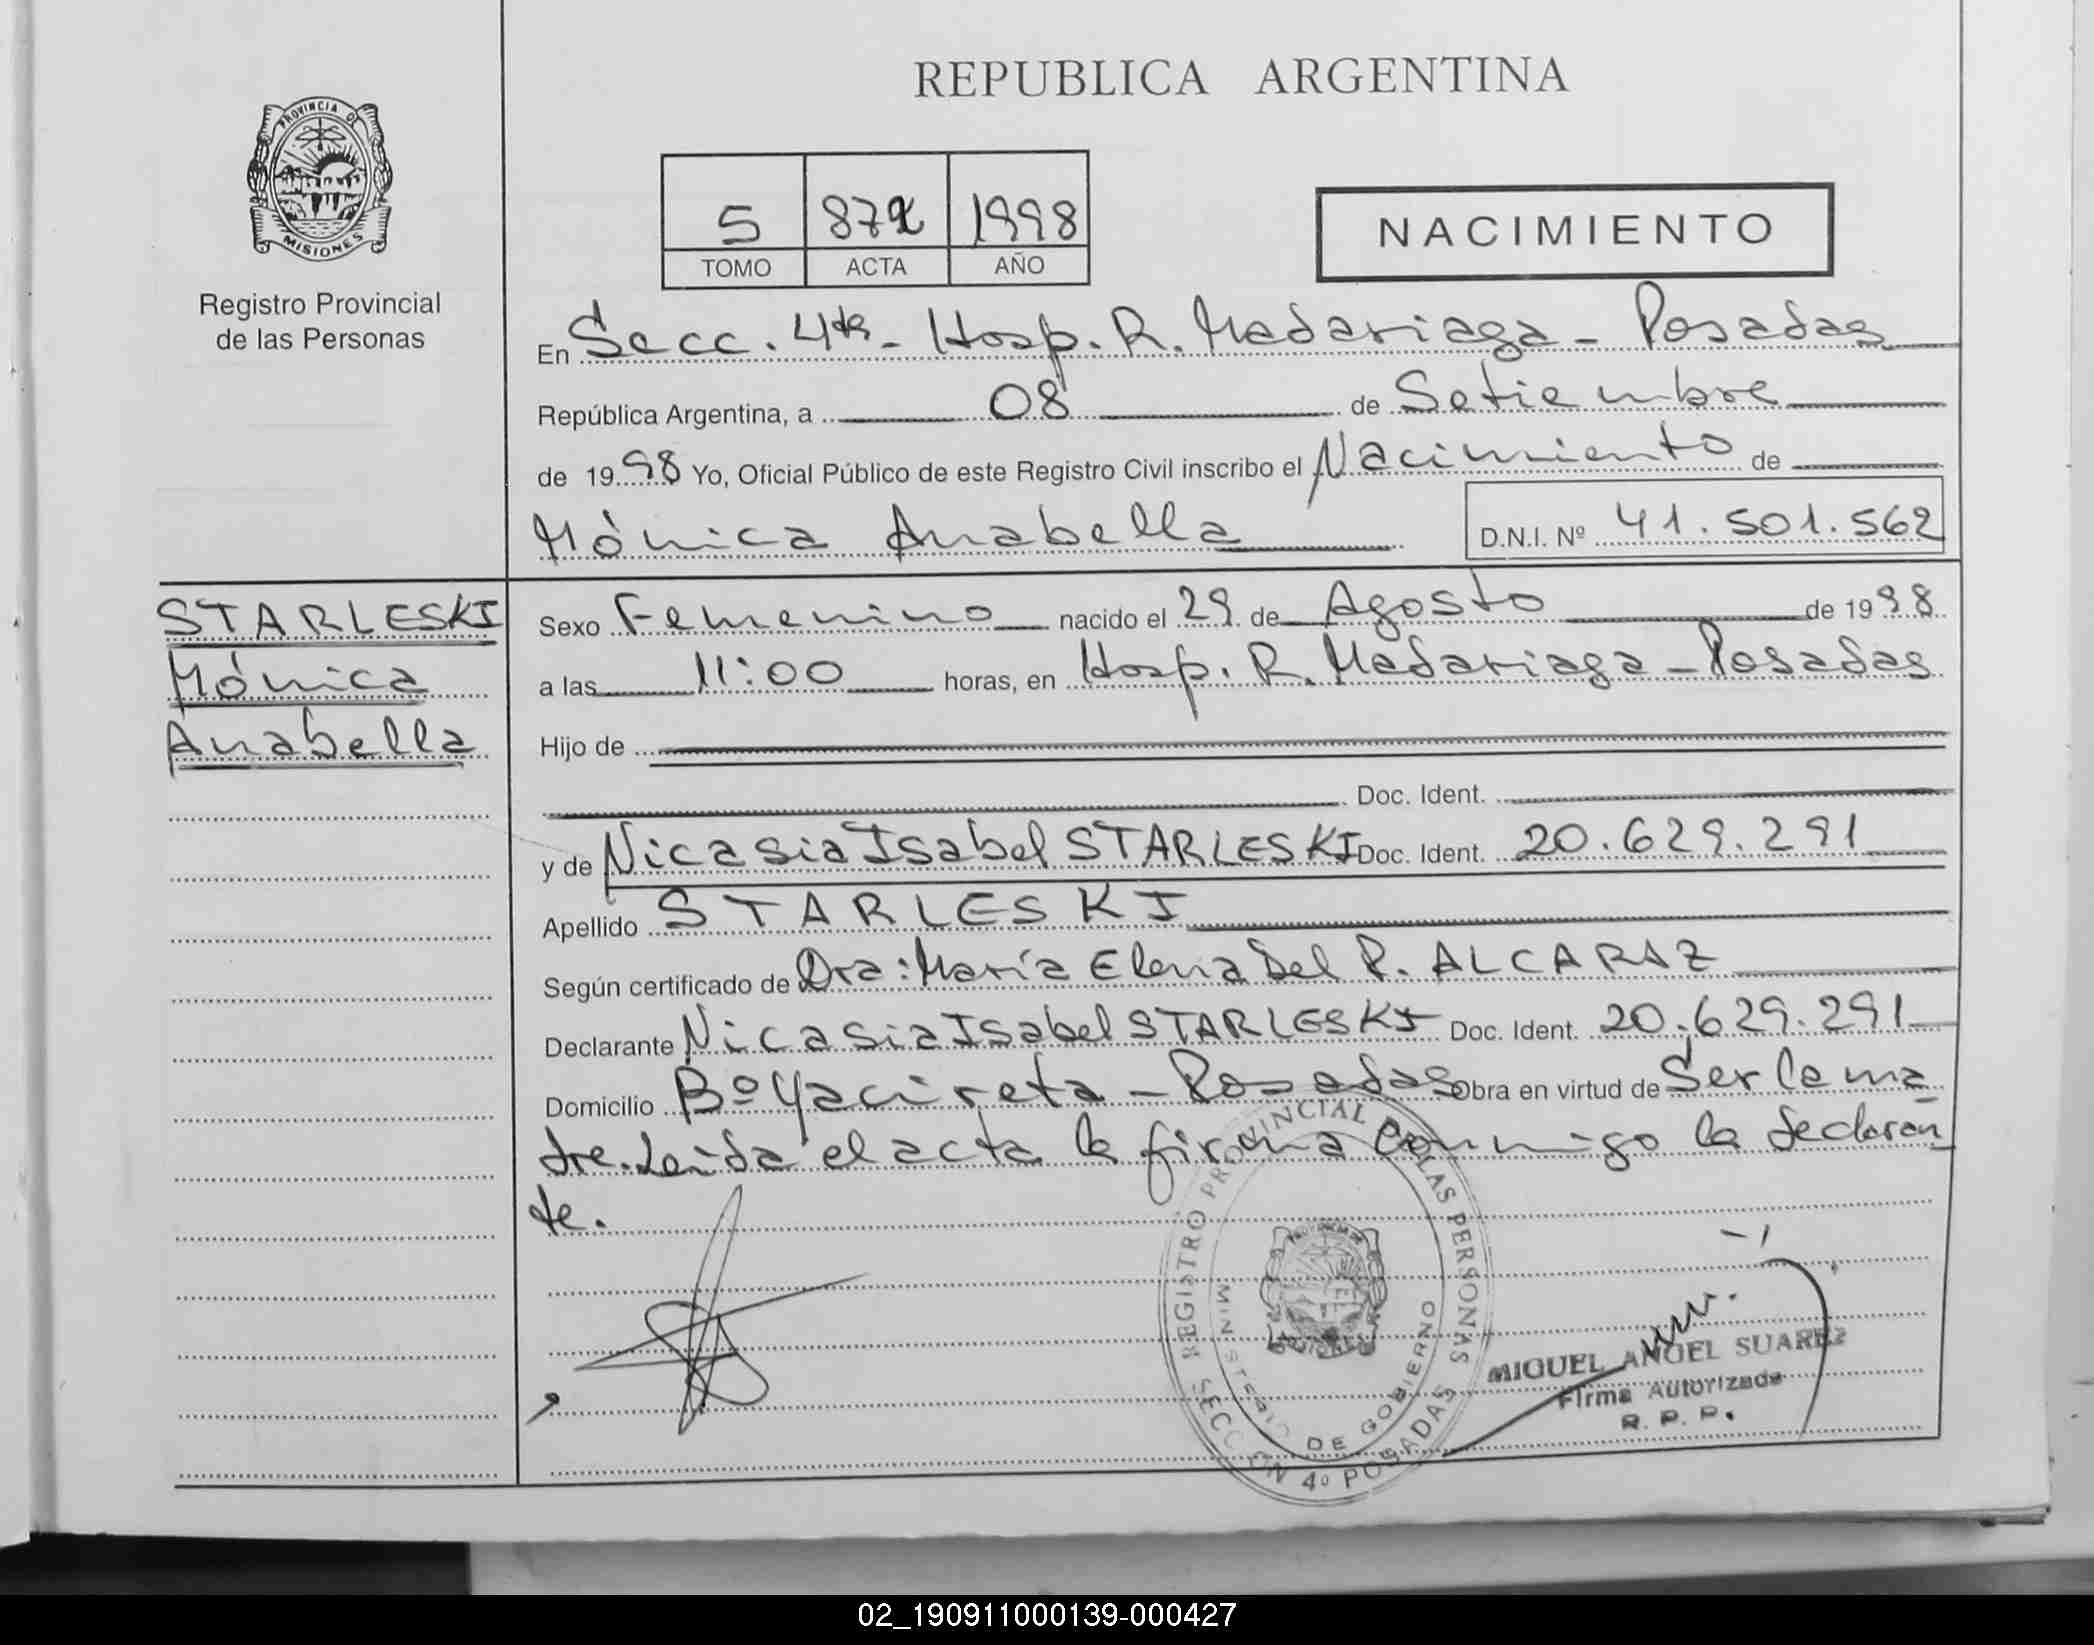 REPUBLICA ARGENTINA
PROVINCIA DE
MISIONES
Registro Provincial
de las Personas
5 1998
TOMO ACTA AÑO
NACIMIENTO
En Secc. 4ta - Hosp. R. Madariaga - Posadas
República Argentina, a 08 de Setiembre
de 1998 Yo, Oficial Público de este Registro Civil inscribo el Nacimiento de
Mónica Anabella D.N.I. Nº 41.501.562
STARLESKI
Mónica
Anabella
Sexo Femenino nacido el 29 de Agosto de 1998
a las 11:00 horas, en Hosp. R. Madariaga - Posadas
Hijo de
Doc. Ident.
y de Nicasia Isabel STARLESKI Doc. Ident. 20.629.291
Apellido STARLESKI
Según certificado de Dra: María Elena del P. ALCARAZ
Declarante Nicasia Isabel STARLESKI Doc. Ident. 20.629.291
Domicilio Bº Yacireta - Posadas Obra en virtud de Ser la ma
dre. Leída el acta la firma conmigo la declaran
te.
REGISTRO PROVINCIAL DE LAS PERSONAS
MINISTERIO DE GOBIERNO
SECCION 4º POSADAS
MIGUEL ANGEL SUAREZ
Firma Autorizada
R. P. P.
02_190911000139-000427